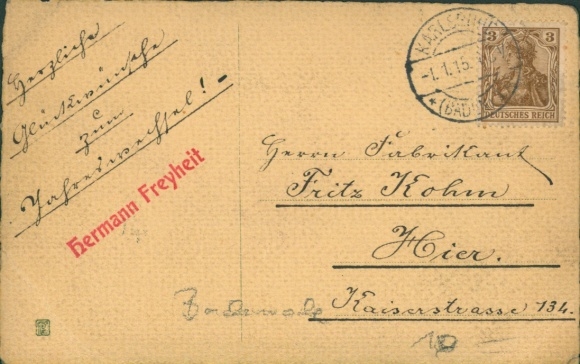 Herzliche
Glückwünsche
zum
Jahreswechsel! -
Hermann Freyheit
KARLSRUHE
-1.1.15.
*(BAD
3 3
DEUTSCHES REICH
Herrn Fabrikant
Fritz Kohm
Hier.
Kaiserstrasse 134.
10